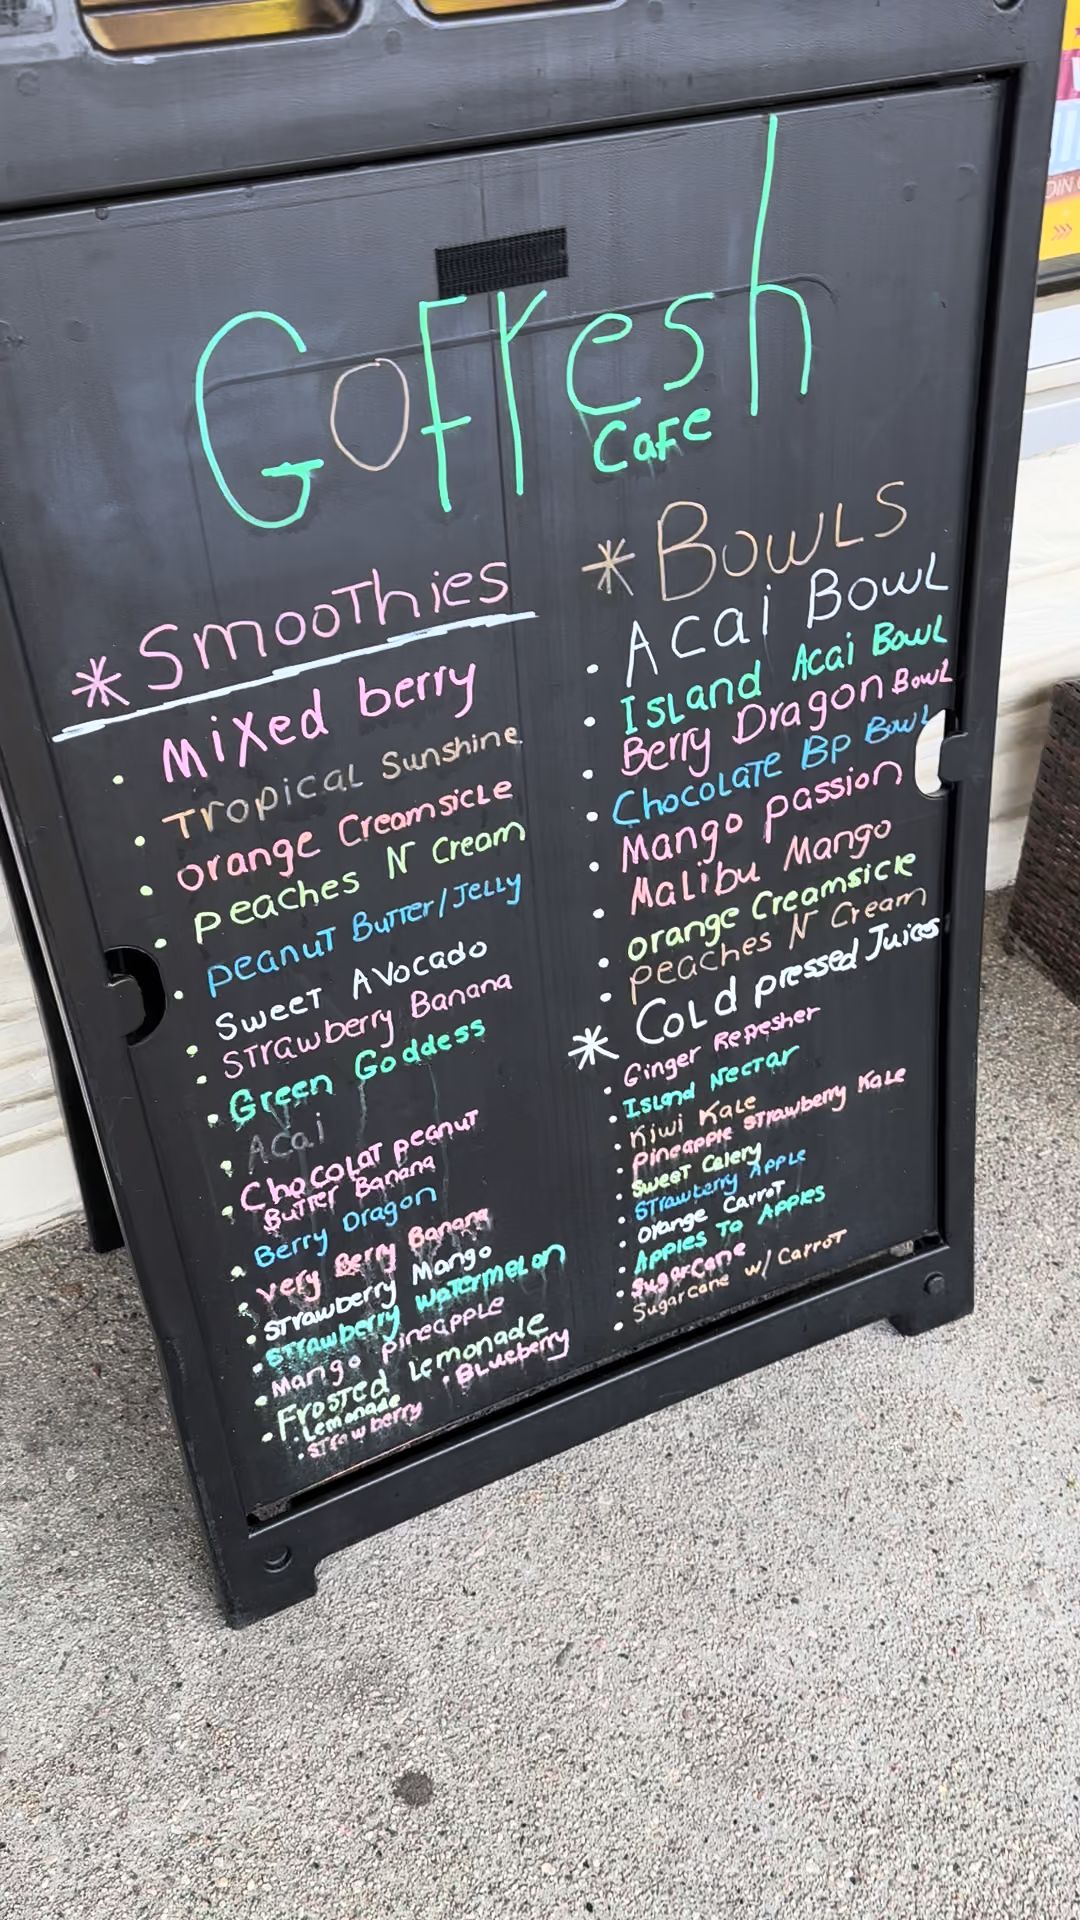 GoFresh
Cafe
* Smoothies
• Mixed berry
• Tropical Sunshine
• orange Creamsicle
• peaches N Cream
• peanut Butter/Jelly
• Sweet Avocado
• Strawberry Banana
• Green Goddess
• Acai
• Chocolat peanut
Butter Banana
• Berry Dragon
• very Berry Banana
• Strawberry Mango
• Strawberry Watermelon
• Mango pineapple
• Frosted Lemonade
• Lemonade
• Blueberry
• Strawberry
* Bowls
• Acai Bowl
• Island Acai Bowl
• Berry Dragon Bowl
• Chocolate BP Bowl
• Mango passion
• Malibu Mango
• orange Creamsicle
• peaches N Cream
* Cold pressed Juices
• Ginger Refresher
• Island Nectar
• Kiwi Kale
• Pineapple Strawberry Kale
• Sweet Celery
• Strawberry Apple
• orange Carrot
• Apples To Apples
• Sugarcane
• Sugarcane w/ Carrot